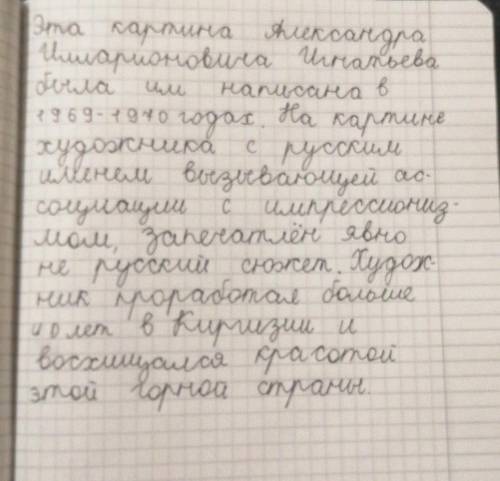 Эта картина Александра
Илларионовича Игнатьева
была им написана в
1969-1970 годах. На картине
художника с русским
именем вызывающей ас-
социации с импрессиониз-
мом, запечатлён явно
не русский сюжет. Худож-
ник проработал больше
40 лет в Киргизии и
восхищался красотой
этой горной страны.